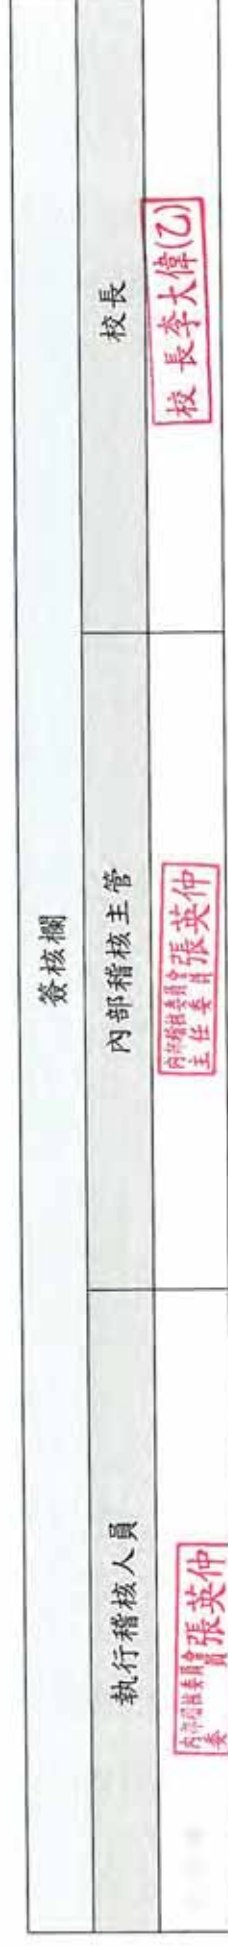 簽核欄
執行稽核人員
內部稽核主管
校長
內部稽核委員會
委員
張英仲
內部稽核委員會
主任委員
張英仲
校長李大偉(乙)